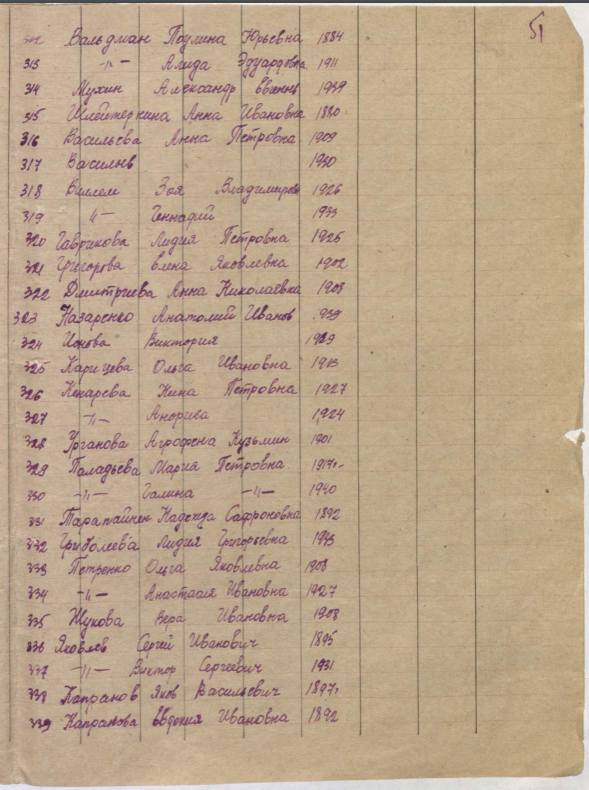 51
312 Вальдман Паулина Юрьевна 1884
313 -"- Алида Эдуардовна 1911
314 Мухин Александр 1939
315 Шлейтеркина Анна Ивановна 1880
316 Васильева Анна Петровна 1909
317 Васильев 1930
318 Виллем Зоя Владимиров 1926
319 "- Геннадий 1933
320 Гаврикова Лидия Петровна 1925
321 Григорова Елена Яковлевна 1902
322 Дмитриева Анна Николаевна 1908
323 Назаренко Анатолий Иванов 1939
324 Ионова Виктория 1929
325 Карицева Ольга Ивановна 1913
326 Кенарева Нина Петровна 1927
327 -"- 1924
328 Урганова Агрофена Кузьмин 1901
329 Паладьева Мария Петровна 1917г.
330 -"- Галина -"- 1940
331 Тарапайнен Надежда Сафроновна 1892
332 Гриболеева Лидия Григорьевна 1943
333 Петренко Ольга Яковлевна 1908
334 -"- Анастасия Ивановна 1927
335 Жукова Вера Ивановна 1908
336 Яковлев Сергей Иванович 1895
337 -"- Виктор Сергеевич 1931
338 Капранов Яков Васильевич 1897г
339 Капранова Евдокия Ивановна 1892